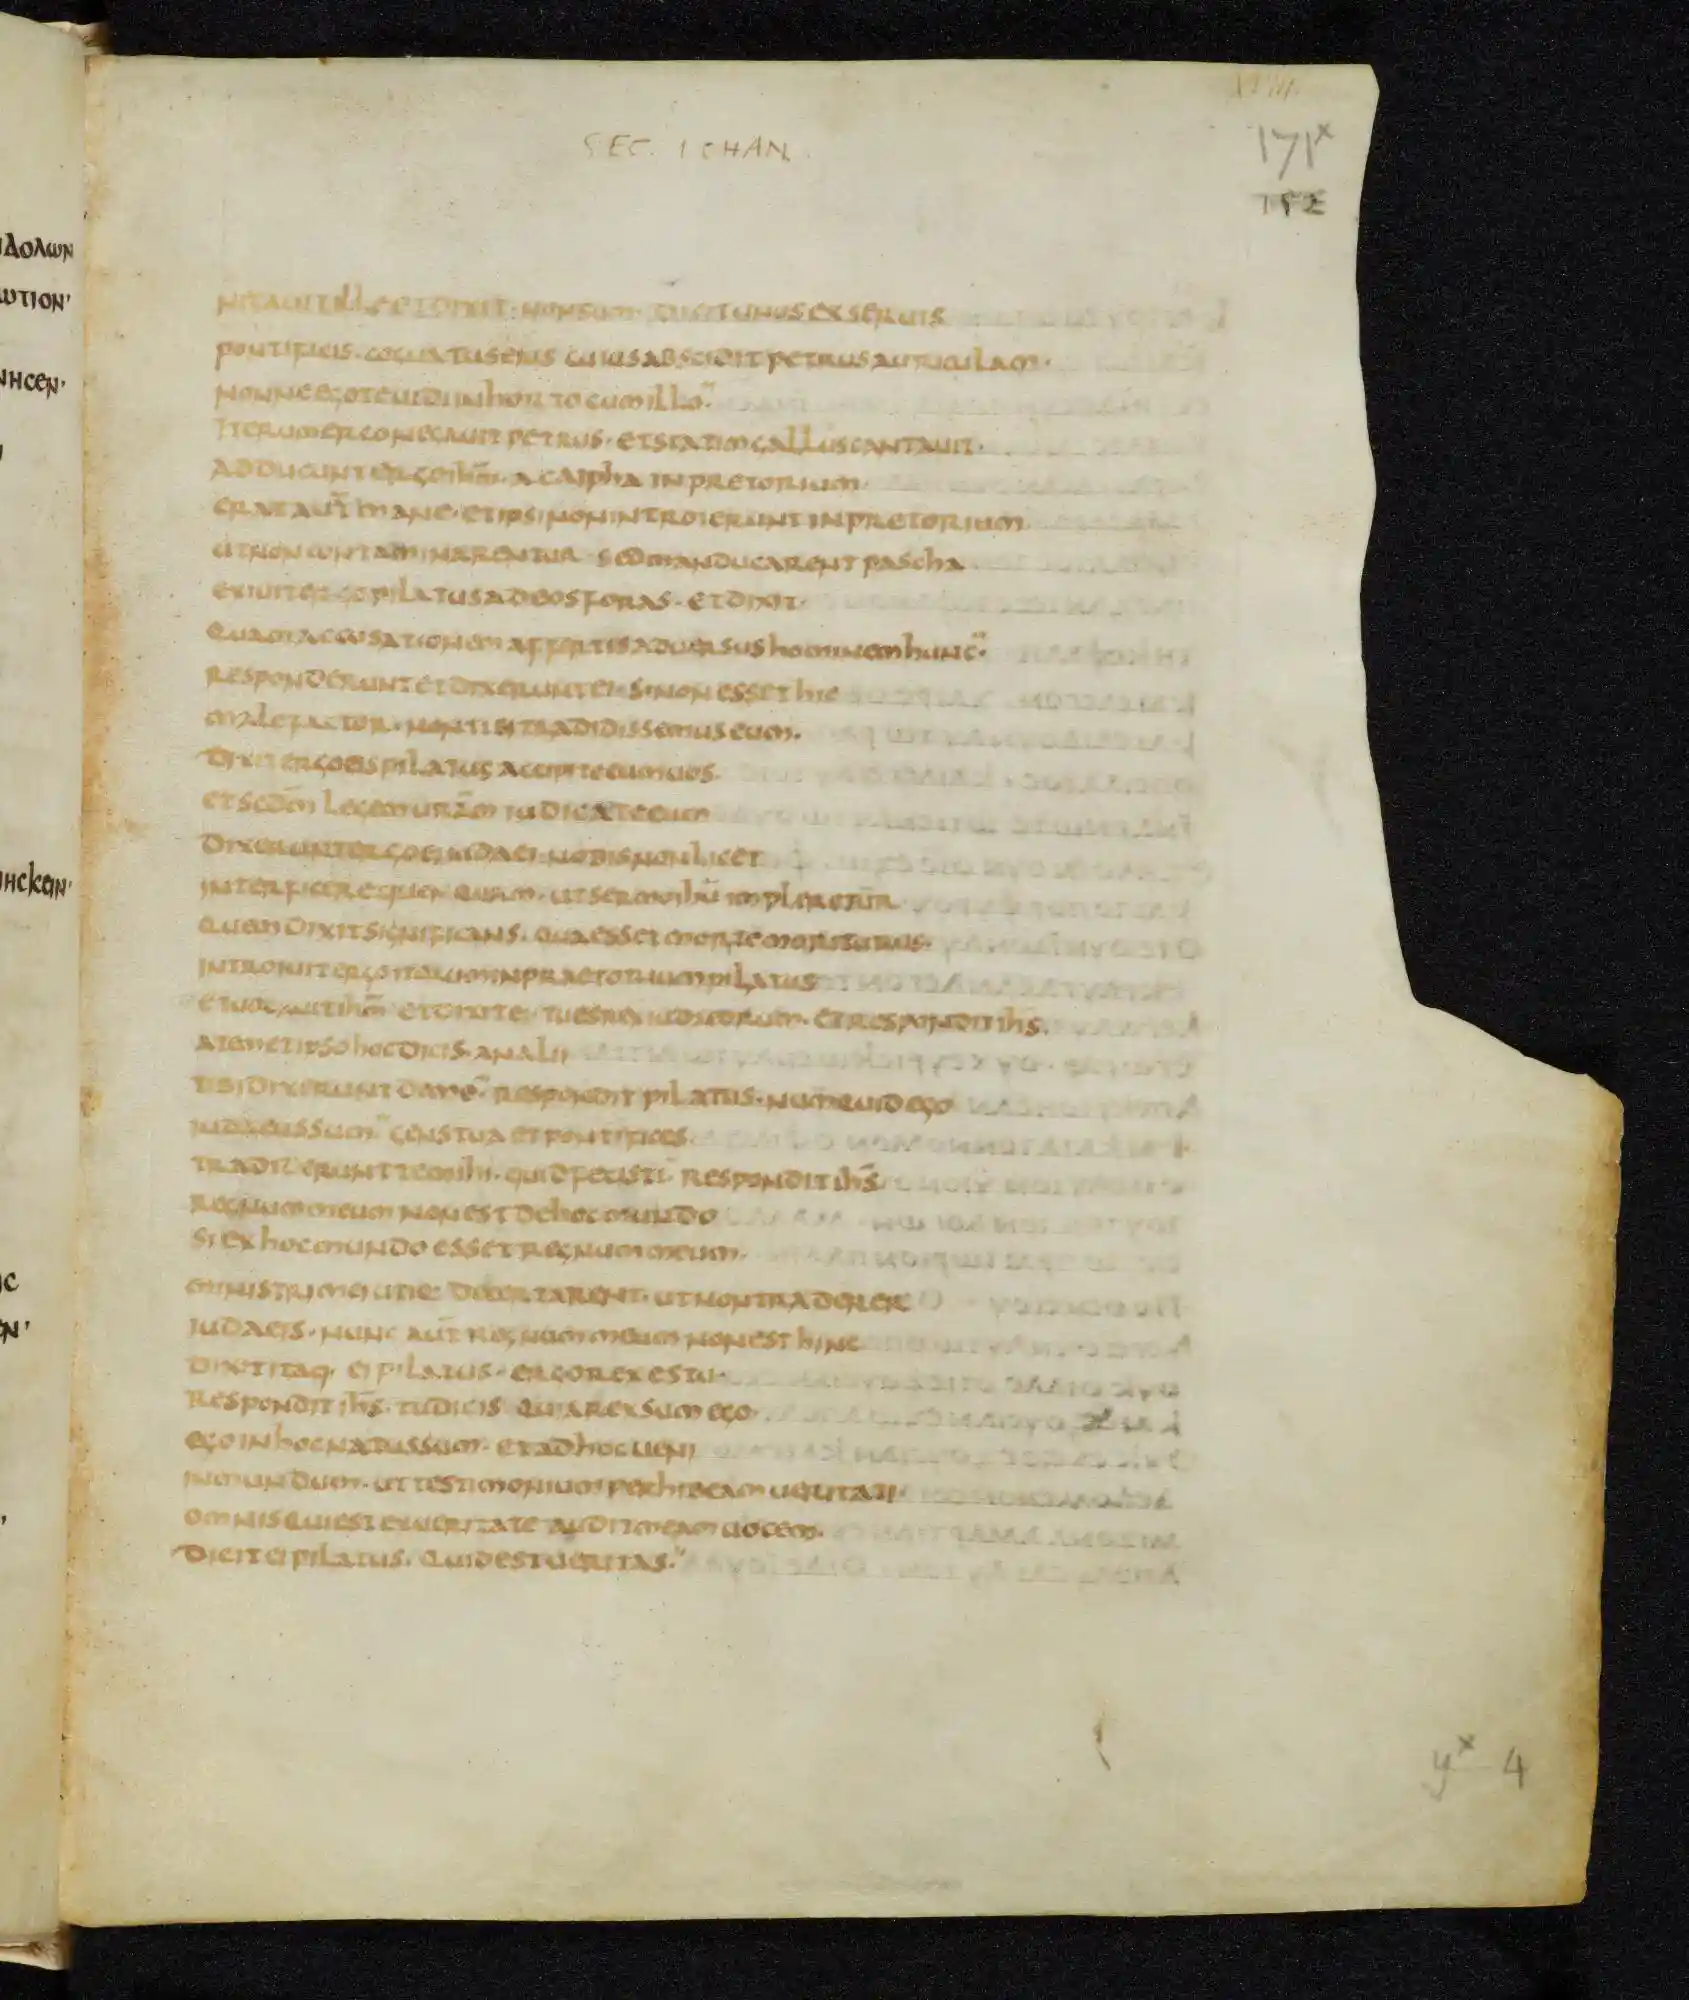 ΔΟΛΩΝ
ΩΤΙΟΝ·
ΝΗϹΕΝ·
ΗϹΚΕΙΝ·
SEC. IOHAN.
171x
152
nitauit ille et dixit· non sum· Dicit unus ex seruis
pontificis· cognatus eius cuius abscidit petrus auriculam·
nonne ego te uidi in horto cum illo
Iterum ergo negauit petrus· et statim gallus cantauit·
Adducunt ergo ihm̄· a caipha in pretorium
erat aut̄ mane· et ipsi non introierunt in pretorium
ut non contaminarentur sed manducarent pascha
exiuit ergo pilatus ad eos foras· et dixit·
Quam accusationem affertis aduersus hominem hunc·
Responderunt et dixerunt ei· si non esset hic
malefactor· non tibi tradidissemus eum·
Dixit ergo eis pilatus accipite eum uos·
et sed̄m legem ur̄am iudicate eum
Dixerunt ergo ei iudaei· nobis non licet
interficere quenquam· ut sermo ihū impleretur
quem dixit significans· qua esset morte moriturus·
Introiuit ergo iterum in praetorium pilatus
et uocauit ihm̄ et dixit ei tu es rex iudeorum· et respondit ihs̄·
a temetipso hoc dicis· an alii
tibi dixerunt de me Respondit pilatus· numquid ego
iudaeus sum gens tua et pontifices
tradiderunt te mihi· quid fecisti Respondit ihs̄
Regnum meum non est de hoc mundo
Si ex hoc mundo esset regnum meum·
ministri mei utique decertarent· ut non traderer
iudaeis· nunc aut̄ regnum meum non est hinc
Dixit itaq· ei pilatus· ergo rex es tu·
Respondit ihs̄· tu dicis quia rex sum ego·
ego in hoc natus sum· et ad hoc ueni
in mundum· ut testimonium perhibeam ueritati
omnis qui est ex ueritate audit meam uocem·
Dicit ei pilatus· quid est ueritas·
yx 4